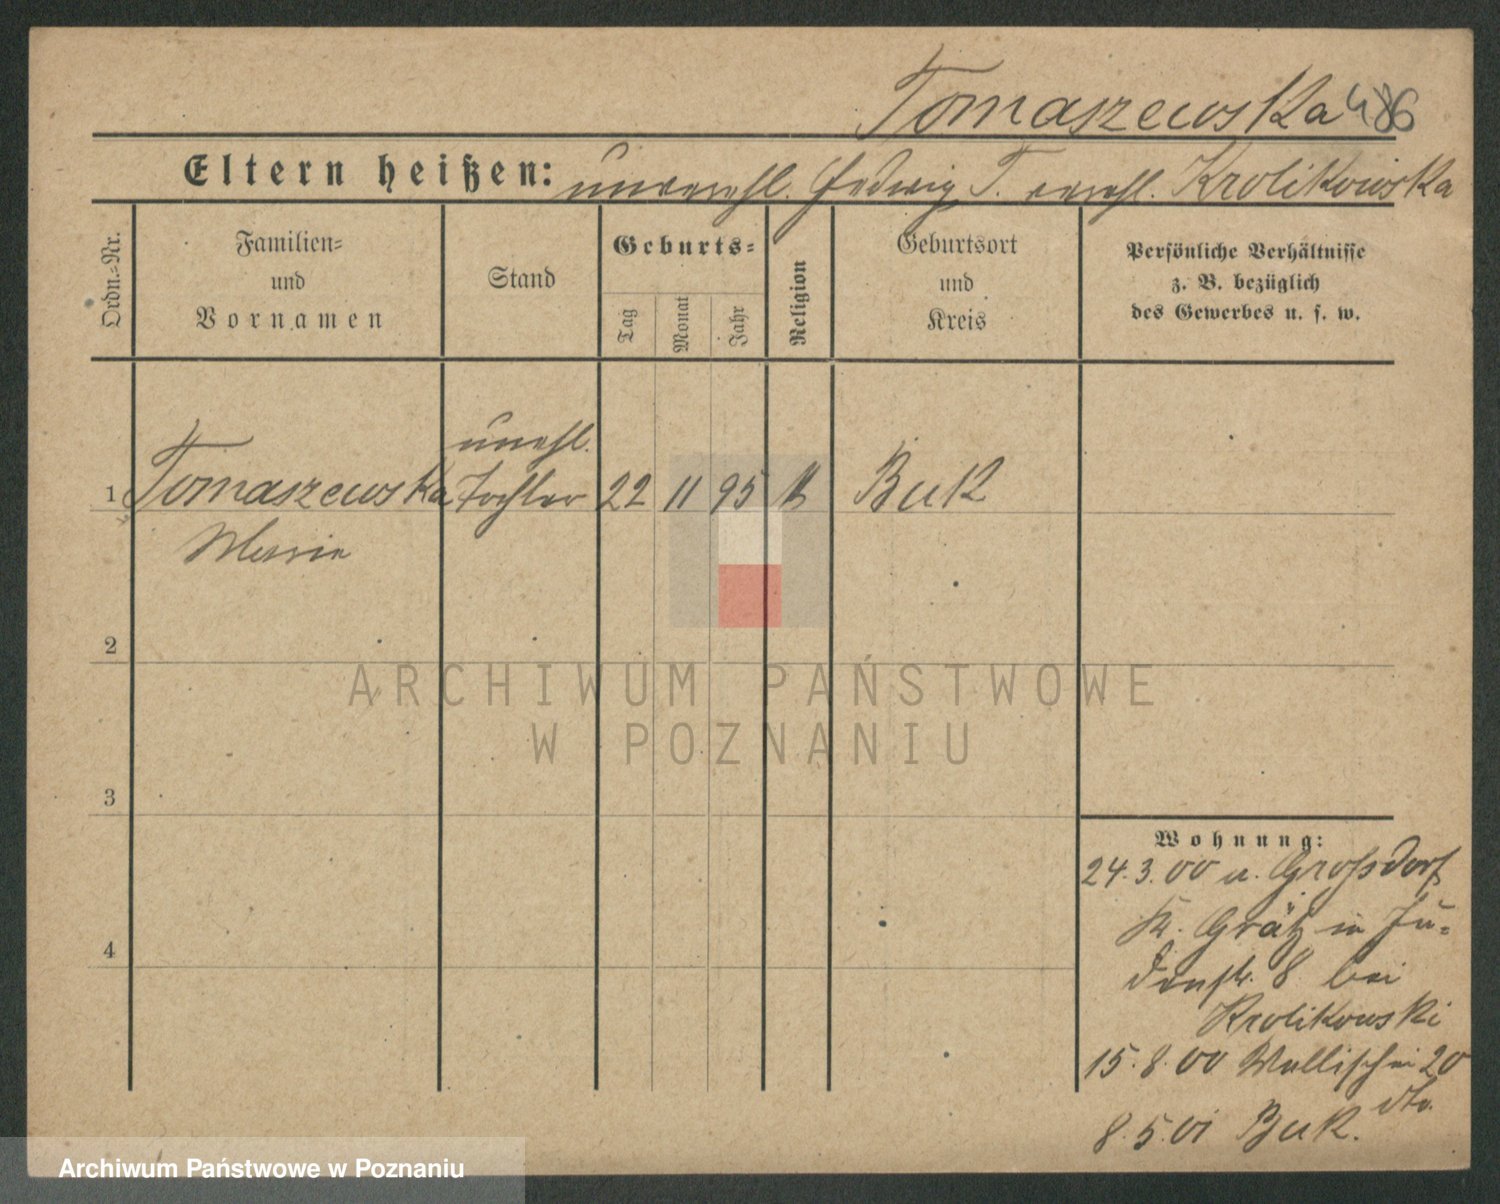 Tomaszewska 486
Eltern heißen: unverehl. Hedwig T. verehl. Krolikowska
Ordn.-Nr.
Familien-
und
Vornamen
Stand
Geburts-
Tag
Monat
Jahr
Religion
Geburtsort
und
Kreis
Persönliche Verhältnisse
z. B. bezüglich
des Gewerbes u. s. w.
unehl.
1 Tomaszewska Tochter 22 11 95 k Buk
Marie
2
3
4
Wohnung:
24.3.00 v. Großdorf
Kr. Grätz in Ju-
denstr. 8 bei
Krolikowski
15.8.00 Wallischei 20
dto.
8.5.01 Buk.
ARCHIWUM PAŃSTWOWE
W POZNANIU
Archiwum Państwowe w Poznaniu